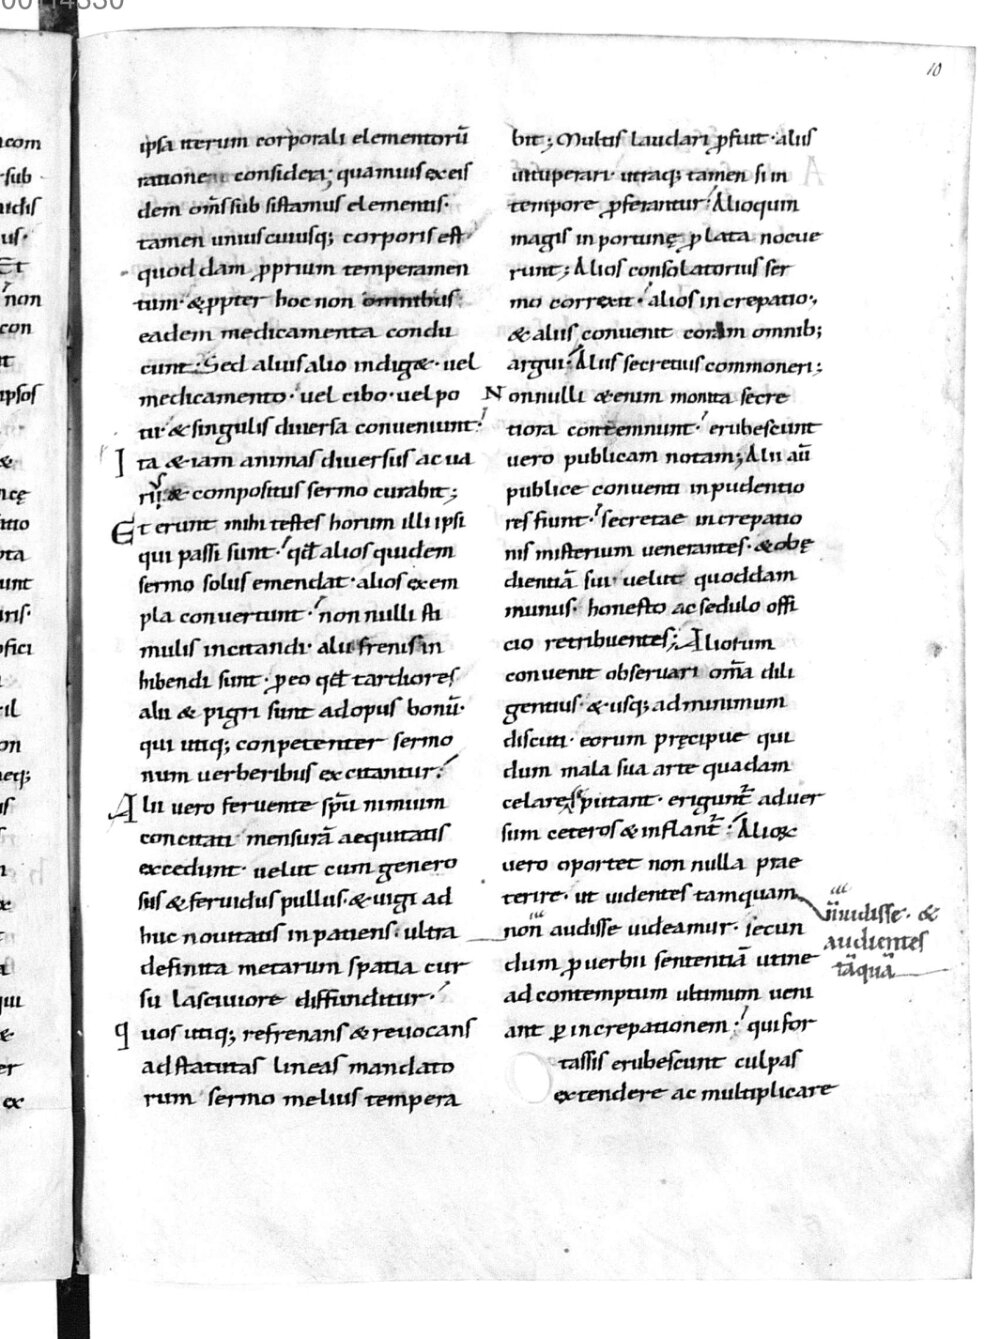 10
ipsa iterum corporali elementorū
ratione considera; quamuis ex eis
dem om̄s subsistamus elementis·
tamen uniuscuiusq; corporis est
quoddam ꝓprium temperamen
tum· & ꝓpter hoc non omnibus
eadem medicamenta condu
cunt· Sed aliusalio indig&· uel
medicamento· uel cibo· uel po
tu· & singulis diuersa conueniunt·
Ita & iam animas diuersus ac ua
rius & compositus sermo curabit;
Et erunt mihi testes horum illi ipsi
qui passi sunt· qđ alios quidem
sermo solus emendat· alios exem
pla conuertunt· non nulli sti
mulis incitandi· alii frenis in
hibendi sunt· ꝓ eo qđ tardiores
alii & pigri sunt ad opus bonū·
qui utiq; conpetenter sermo
num uerberibus excitantur·
Alii uero feruente sp̄u nimium
concitati mensurā aequitatis
excedunt· uelut cum genero
sus & feruidus pullus· & uigi ad
huc nouitatis inpatiens· ultra
definita metarum spatia cur
su lasciuiore diffunditur·
quos utiq; refrenans & reuocans
ad statutas lineas mandato
rum sermo melius tempera
bit; Multis laudari ꝓfuit· aliis
uituperari· utraq; tamen si in
tempore ꝓferantur· Alioquin
magis inportunę ꝓlata nocue
runt; Alios consolatorius ser
mo correxit· alios increpatio·,
& aliis conuenit coram omnib;
argui· Aliis secretius commoneri;
Nonnulli & enim monita secre
tiora contemnunt· erubescunt
uero publicam notam; Alii aū
publice conuenti inpudentio
res fiunt· secretae increpatio
nis misterium uenerantes· & obę
dientiā sui uelut quoddam
munus· honesto ac sedulo offi
cio retribuentes; Aliorum
conuenit obseruari om̄a dili
gentius· & usq; ad minimum
discuti· eorum pręcipue qui
dum mala sua arte quadam
celare se putant· eriguntur aduer
sum ceteros & inflantur· Alios
uero oportet non nulla prae
terire· ut uidentes tamquam
non̄ audisse uideamur· iecun
dum ꝓuerbii sententiā ut ine
ad contemptum ultimum ueni
ant ꝑ increpationem· qui for
tassis erubescunt culpas
extendere ac multiplicare
n̄ uidisse· &
audientes
tāquā